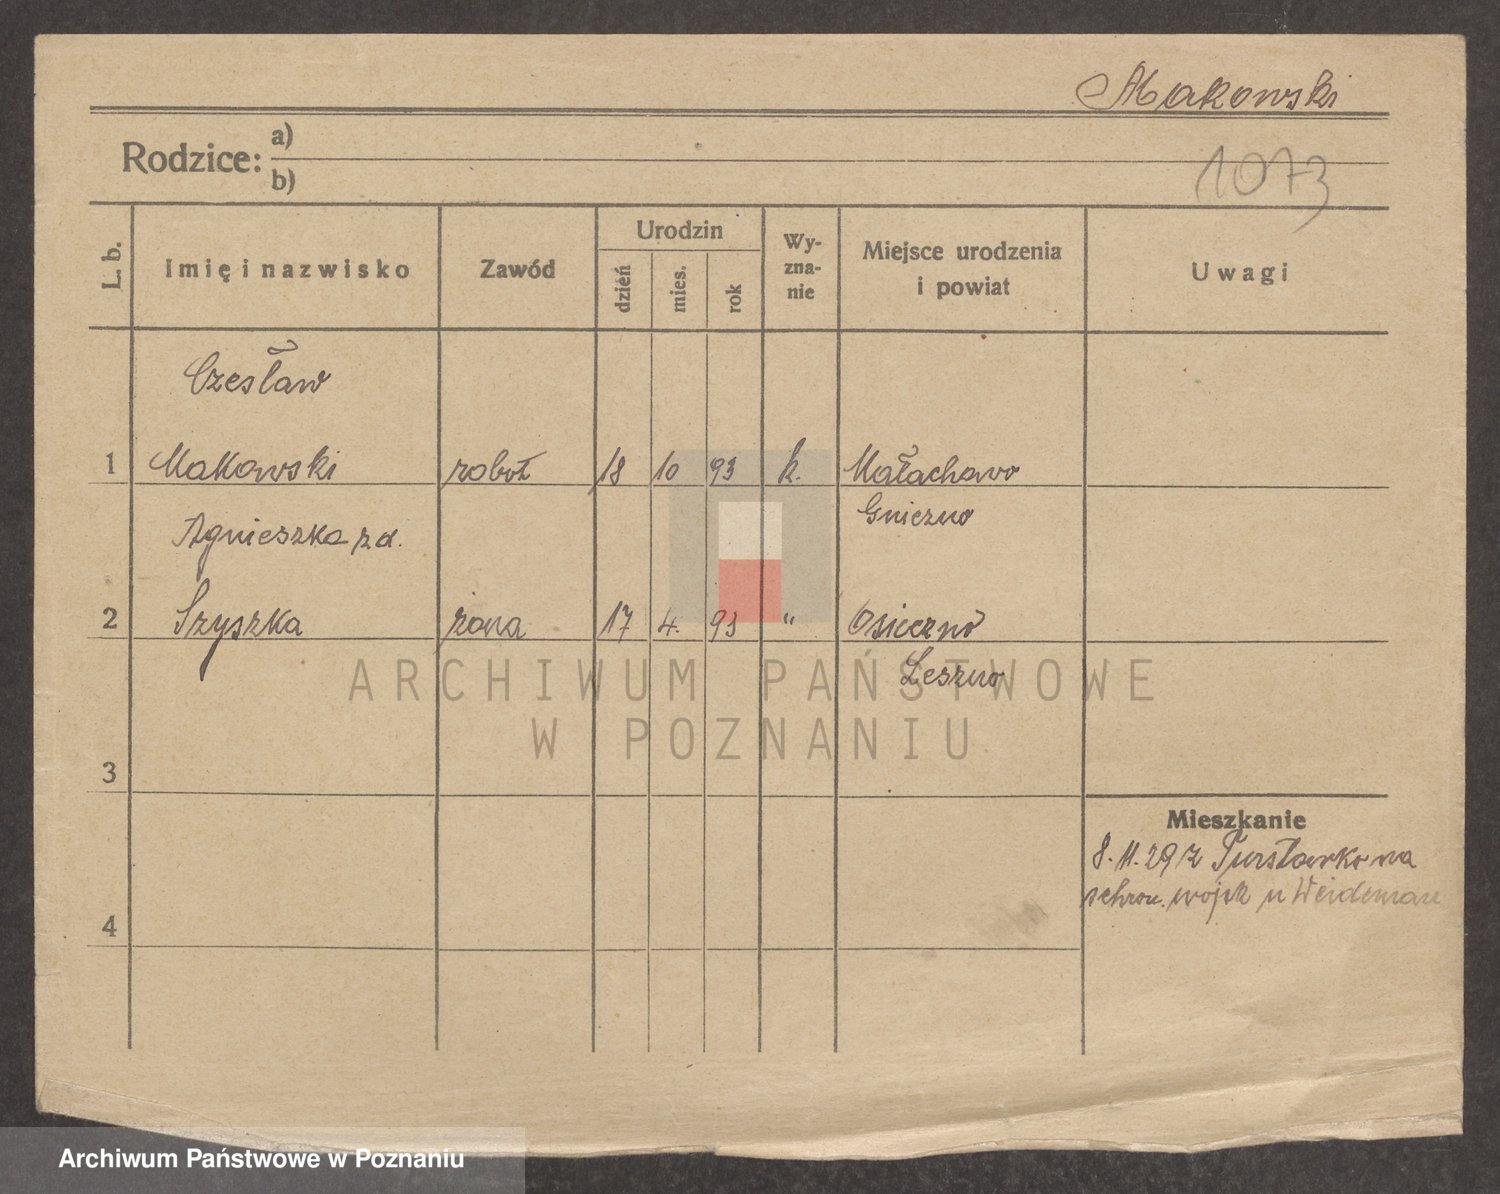 Makowski
Rodzice: a)
b)
1073
L. b.
Imię i nazwisko
Zawód
Urodzin
dzień
mies.
rok
Wy-
zna-
nie
Miejsce urodzenia
i powiat
Uwagi
Czesław
1 Makowski robot 18 10 93 k. Małachowo
Gniezno
Agnieszka zd.
2 Szyszka żona 17 4. 93 " Osieczno
Leszno
ARCHIWUM PAŃSTWOWE
W POZNANIU
3
Mieszkanie
8.11.29 z
schron. wojsk u Weideman
4
Archiwum Państwowe w Poznaniu